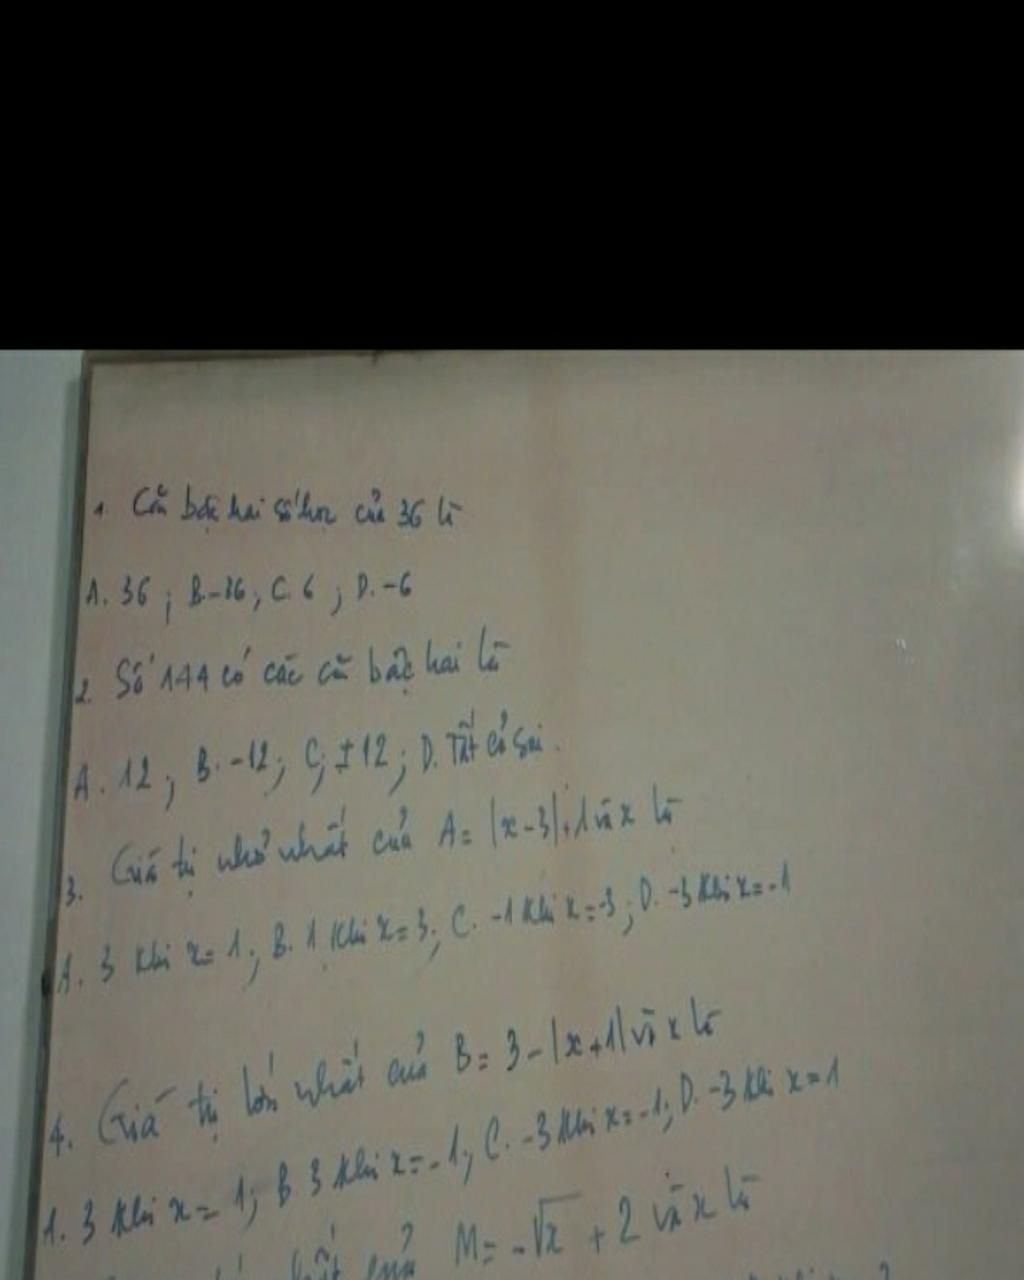 1. Căn bậc hai số học của 36 là
A. 36 ; B. -36 ; C. 6 ; D. -6
2. Số 144 có các căn bậc hai là
A. 12 ; B. -12 ; C. ±12 ; D. Tất cả sai.
3. Giá trị nhỏ nhất của A = |x-3|+1 và x là
A. 3 khi x = 1 ; B. 1 khi x = 3 ; C. -1 khi x = -3 ; D. -3 khi x = -1
4. Giá trị lớn nhất của B = 3 - |x+1| và x là
A. 3 khi x = 1 ; B. 3 khi x = -1 ; C. -3 khi x = -1 ; D. -3 khi x = 1
nhất của M = -√x + 2 và x là